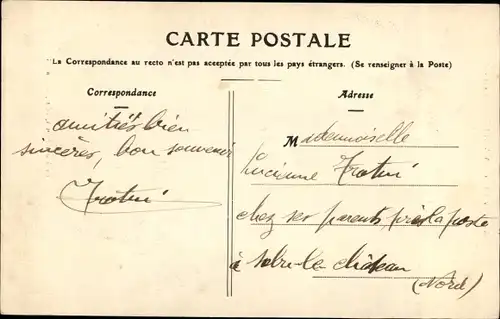 CARTE POSTALE
La Correspondance au recto n'est pas acceptée par tous les pays étrangers. (Se renseigner à la Poste)
Correspondance
amitiés bien
sincères, bon souvenir
Adresse
Mademoiselle
Lucienne
chez ses parents, près la poste
à Solre-le-château
(Nord)